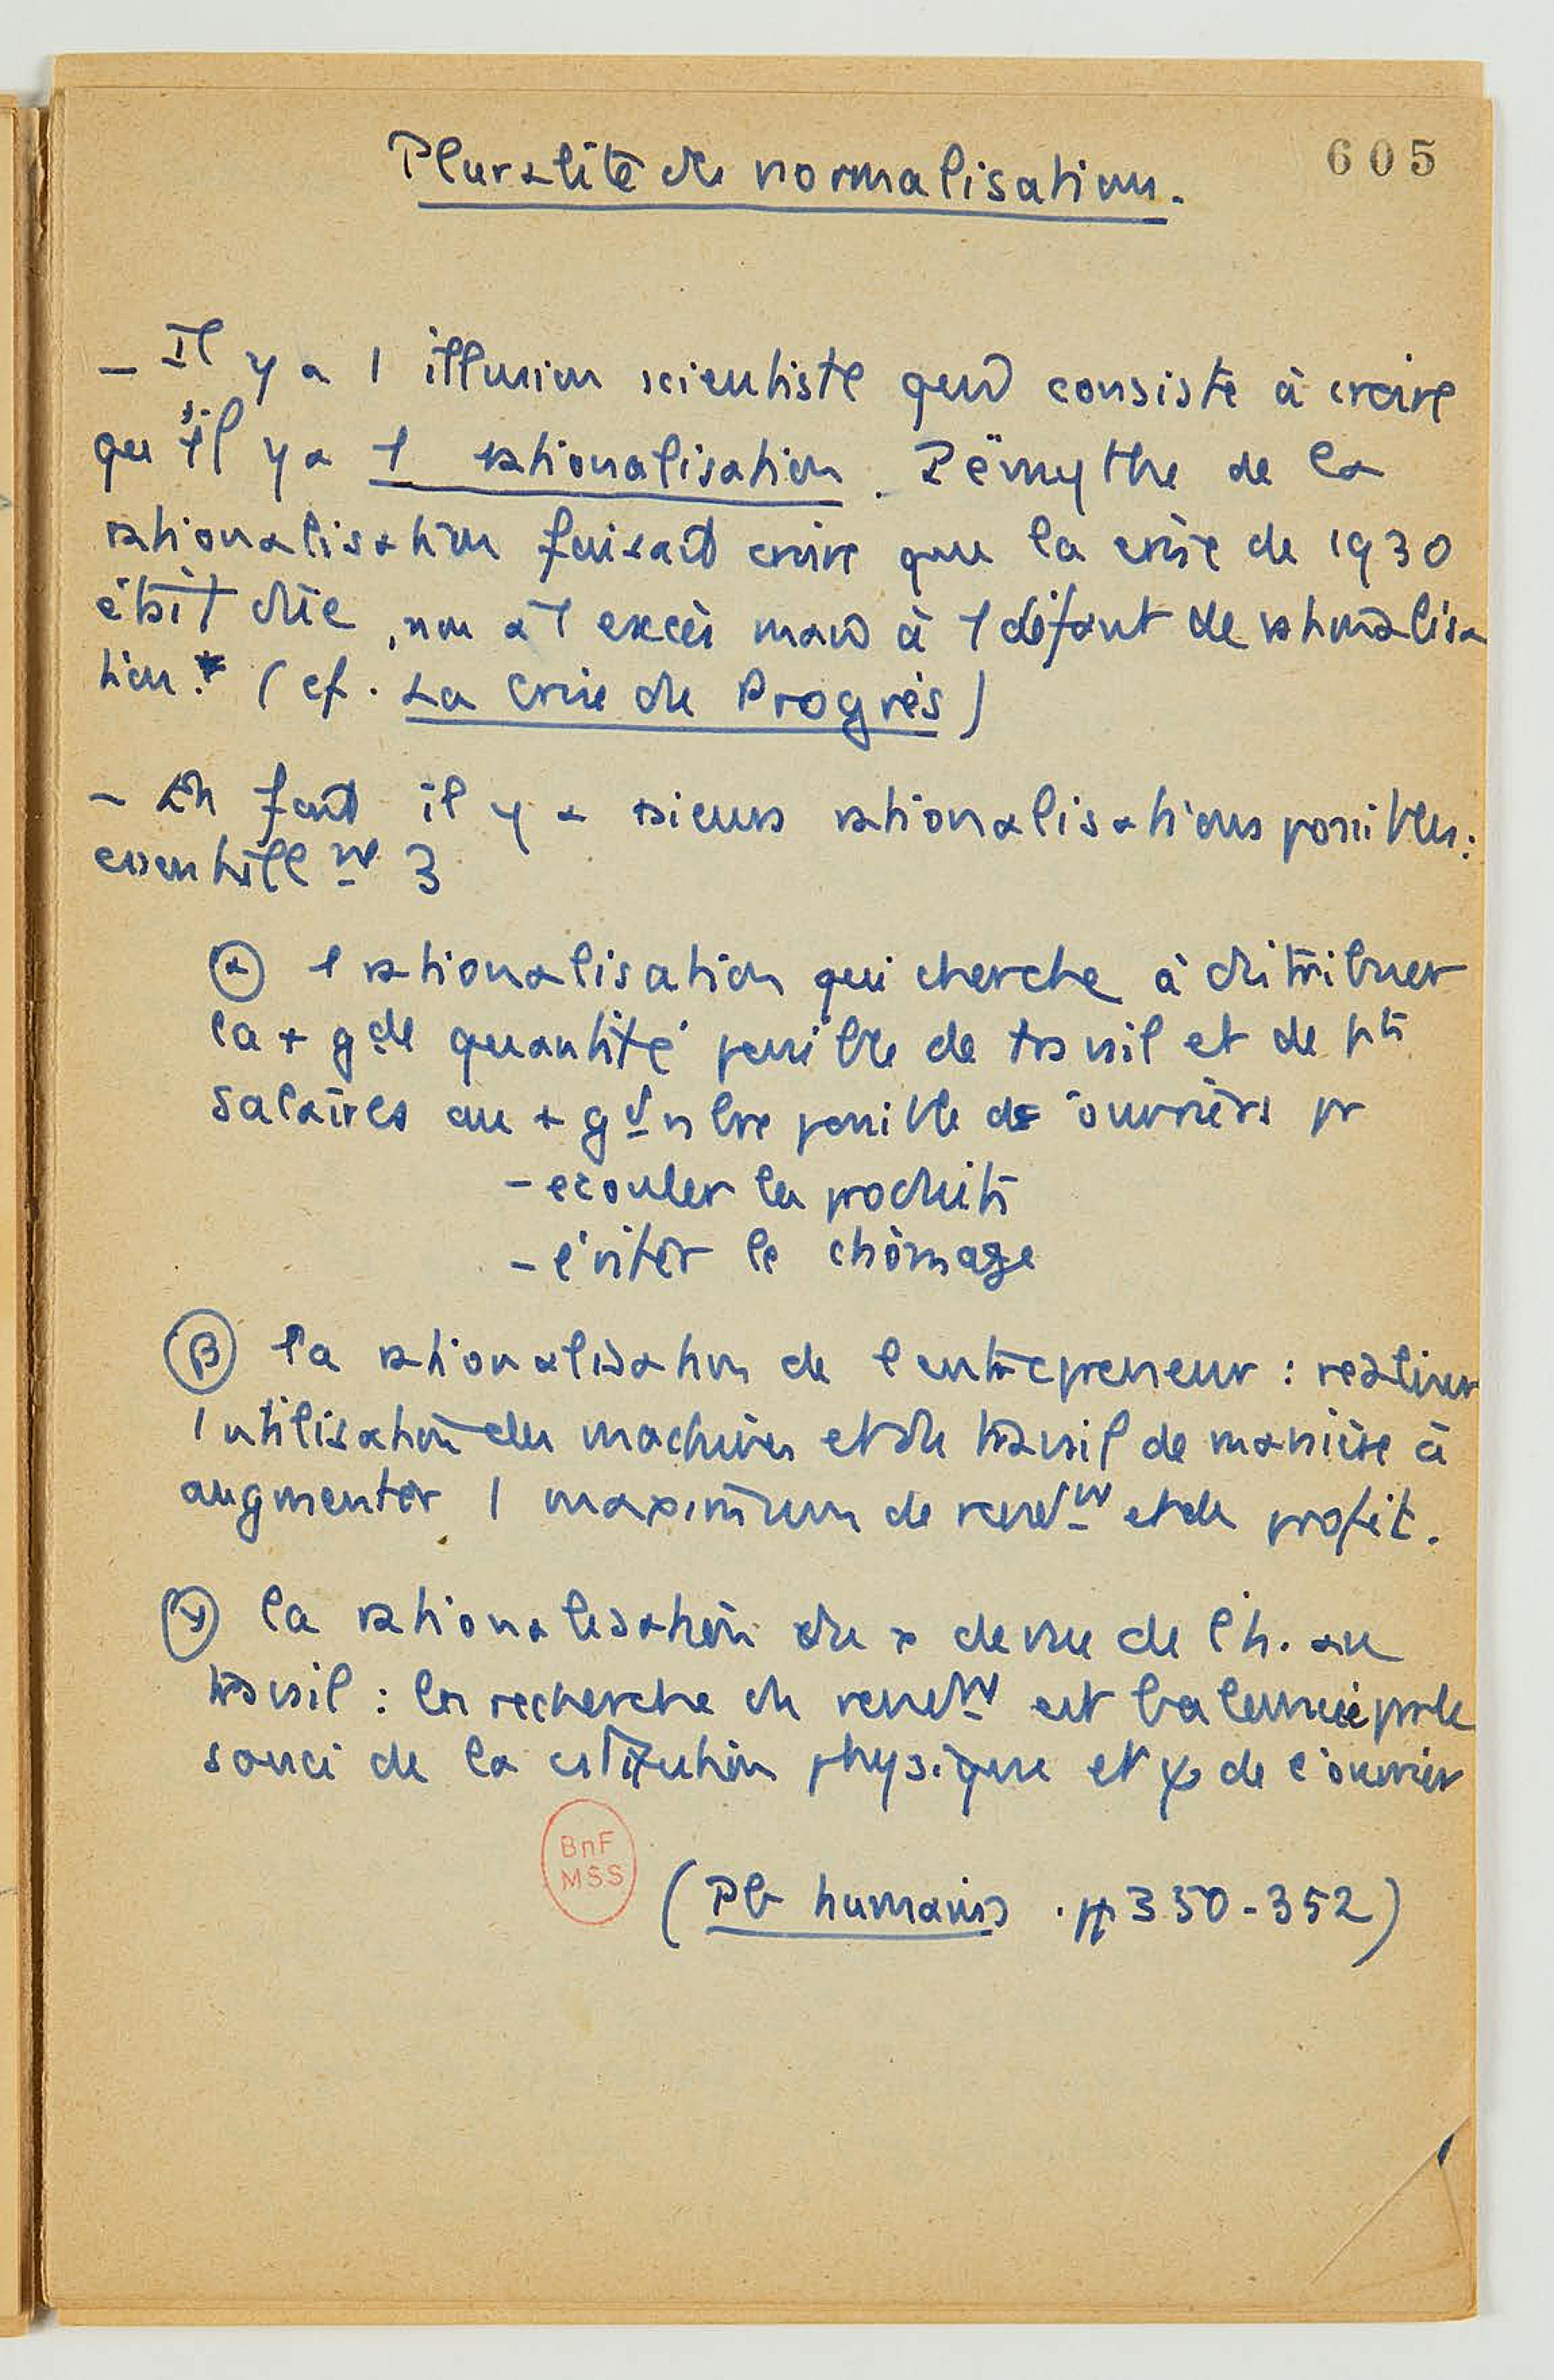 605
Pluralité de normalisation.
– Il y a 1 illusion scientiste qui consiste à croire
qu'il y a 1 rationalisation. mythe de la
rationalisation faisait croire que la crise de 1930
était dûe, non à 1 excès mais à 1 défaut de rationalisa
tion. (cf. La Crise du Progrès)
– En fait il y a rationalisations possibles:
essentiellt 3
α 1 rationalisation qui cherche à distribuer
la + gde quantité possible de travail et de pts
salaires au + gd nbre possible de ouvriers pr
– ecouler les produits
– éviter le chômage
β la rationalisation de l entrepreneur : realiser
l utilisation des machines et du travail de manière à
augmenter 1 maximum de rendt et de profit.
γ la rationalisation du de vue de l'h. au
travail : la recherche du rendt est par le
souci de la physique et ψ de l'ouvrier
BnF
MSS
(Pb humains . pp 350-352)